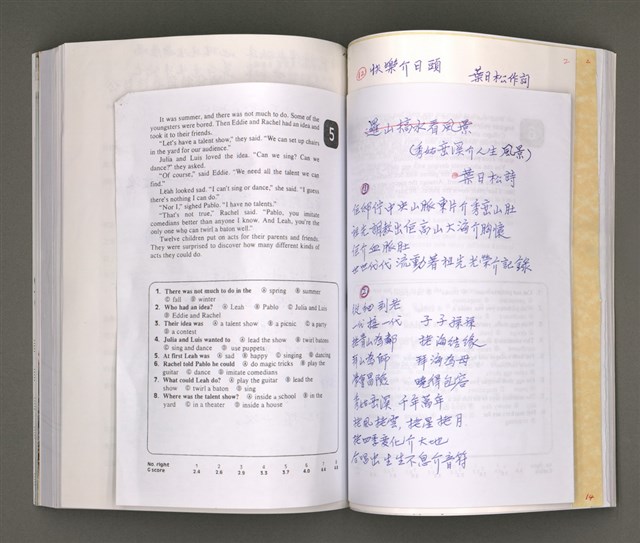 It was summer, and there was not much to do. Some of the
youngsters were bored. Then Eddie and Rachel had an idea and
took it to their friends.
"Let's have a talent show," they said. "We can set up chairs
in the yard for our audience."
Julia and Luis loved the idea. "Can we sing? Can we
dance?" they asked.
"Of course," said Eddie. "We need all the talent we can
find."
Leah looked sad. "I can't sing or dance," she said. "I guess
there's nothing I can do."
"Nor I," sighed Pablo. "I have no talents."
"That's not true," Rachel said. "Pablo, you imitate
comedians better than anyone I know. And Leah, you're the
only one who can twirl a baton well."
Twelve children put on acts for their parents and friends.
They were surprised to discover how many different kinds of
acts they could do.
5
1. There was not much to do in the Ⓐ spring Ⓑ summer
Ⓒ fall Ⓓ winter
2. Who had an idea? Ⓐ Leah Ⓑ Pablo Ⓒ Julia and Luis
Ⓓ Eddie and Rachel
3. Their idea was Ⓐ a talent show Ⓑ a picnic Ⓒ a party
Ⓓ a contest
4. Julia and Luis wanted to Ⓐ lead the show Ⓑ twirl baton
Ⓒ sing and dance Ⓓ use puppets.
5. At first Leah was Ⓐ sad Ⓑ happy Ⓒ singing Ⓓ dancing
6. Rachel told Pablo he could Ⓐ do magic tricks Ⓑ play the
guitar Ⓒ dance Ⓓ imitate comedians
7. What could Leah do? Ⓐ play the guitar Ⓑ lead the
show Ⓒ twirl a baton Ⓓ sing
8. Where was the talent show? Ⓐ inside a school Ⓑ in the
yard Ⓒ in a theater Ⓓ inside a house
No. right 1 2 3 4 5 6 7 8
G score 2.4 2.6 2.9 3.3 3.7 4.0
快樂介日頭
葉日松作詞
山 看風景
(秀姑巒溪介人生風景)
葉日松詩
①
中央山脈東片介秀峦山肚
高山大海介胸懷
介血脈肚
世世代代流動着祖先光榮介記錄
②
從細到老
一代接一代 子子孫孫
同海結緣
拜海為母
冒險 包容
秀姑峦溪 千年萬年
風 雲, 星 月
四季變化介大地
合唱出生生不息介音符
14